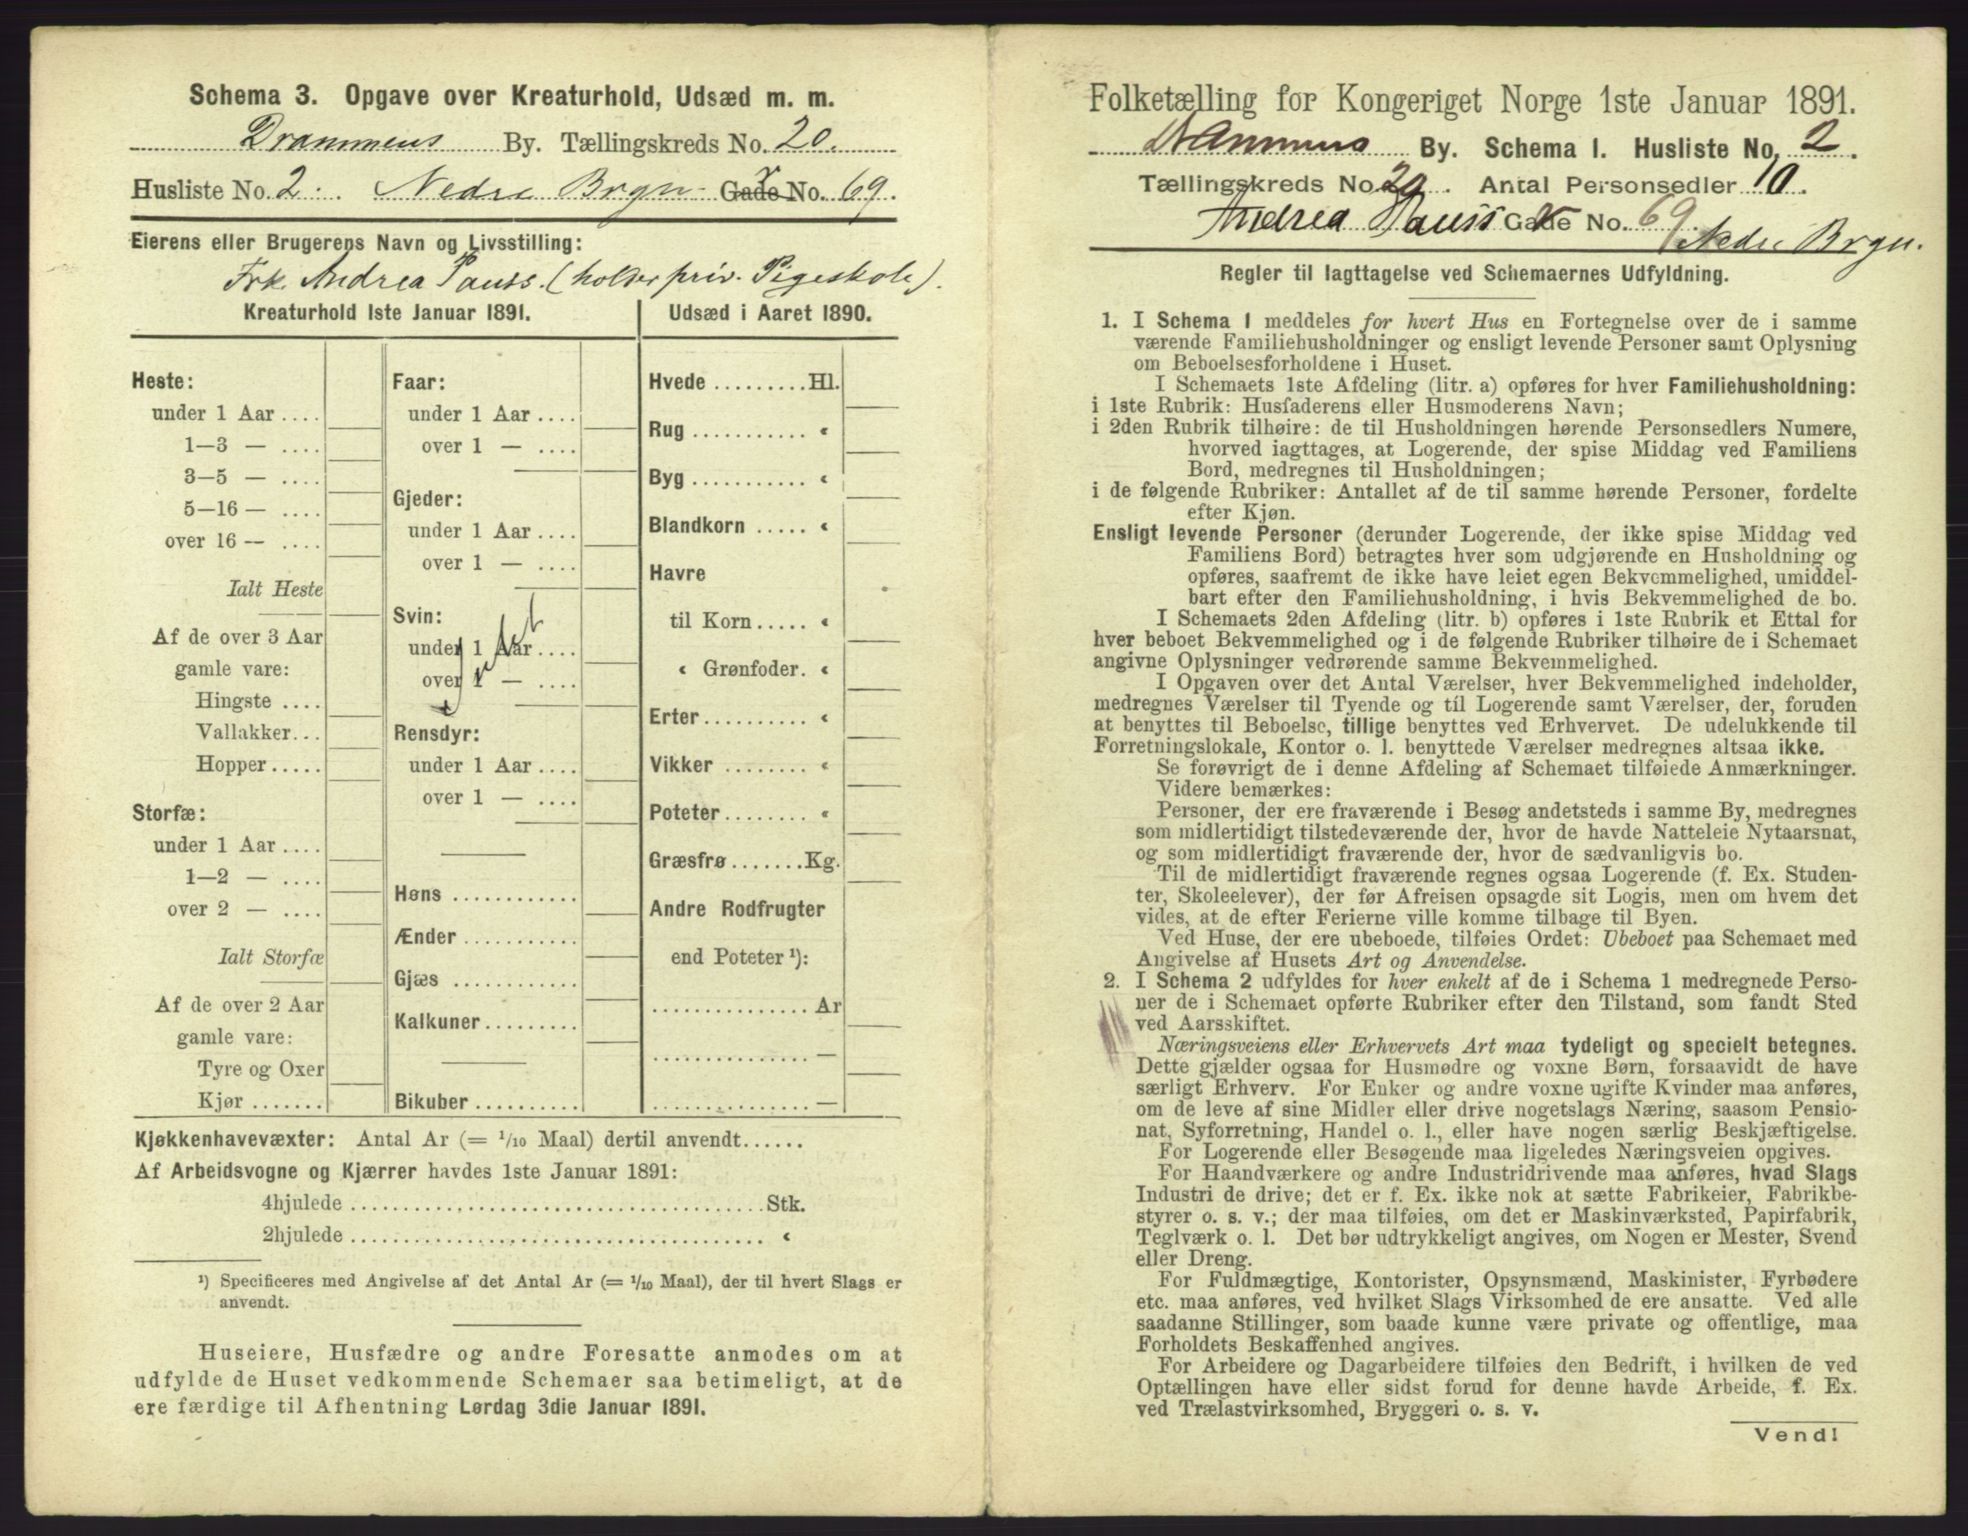 Schema 3. Opgave over Kreaturhold, Udsæd m. m.
Drammens By. Tællingskreds No. 20.
Husliste No. 2. Nedre Brgn. Gade No. 69.
Eierens eller Brugerens Navn og Livsstilling:
Frk. Andrea Pauss. (holder priv. Pigeskole).
Kreaturhold 1ste Januar 1891.
Heste:
under 1 Aar ....
1—3 — ....
3—5 — ....
5—16 — ....
over 16 — ....
Ialt Heste
Af de over 3 Aar
gamle vare:
Hingste ....
Vallakker...
Hopper.....
Storfæ:
under 1 Aar ....
1—2 — ....
over 2 — ....
Ialt Storfæ
Af de over 2 Aar
gamle vare:
Tyre og Oxer
Kjør.......
Faar:
under 1 Aar ....
over 1 — ....
Gjeder:
under 1 Aar ....
over 1 — ....
Svin:
under 1 Aar ....
over 1 — ....
Rensdyr:
under 1 Aar ....
over 1 — ....
Høns ............
Ænder ...........
Gjæs ............
Kalkuner.........
Bikuber..........
Udsæd i Aaret 1890.
Hvede .........Hl.
Rug ........... «
Byg ........... «
Blandkorn ..... «
Havre
til Korn..... «
« Grønfoder. «
Erter.......... «
Vikker ........ «
Poteter........ «
Græsfrø.......Kg.
Andre Rodfrugter
end Poteter ¹):
...............Ar
............... —
............... —
Kjøkkenhavevæxter: Antal Ar (= 1/10 Maal) dertil anvendt......
Af Arbeidsvogne og Kjærrer havdes 1ste Januar 1891:
4hjulede ........................................Stk.
2hjulede ........................................ «
¹) Specificeres med Angivelse af det Antal Ar (= 1/10 Maal), der til hvert Slags er
anvendt.
Huseiere, Husfædre og andre Foresatte anmodes om at
udfylde de Huset vedkommende Schemaer saa betimeligt, at de
ere færdige til Afhentning Lørdag 3die Januar 1891.
Folketælling for Kongeriget Norge 1ste Januar 1891.
Drammens By. Schema 1. Husliste No. 2.
Tællingskreds No. 20. Antal Personsedler 10.
Andrea Pauss Gade No. 69 Nedre Brgn.
Regler til Iagttagelse ved Schemaernes Udfyldning.
1. I Schema 1 meddeles for hvert Hus en Fortegnelse over de i samme
værende Familiehusholdninger og ensligt levende Personer samt Oplysning
om Beboelsesforholdene i Huset.
I Schemaets 1ste Afdeling (litr. a) opføres for hver Familiehusholdning:
i 1ste Rubrik: Husfaderens eller Husmoderens Navn;
i 2den Rubrik tilhøire: de til Husholdningen hørende Personsedlers Numere,
hvorved iagttages, at Logerende, der spise Middag ved Familiens
Bord, medregnes til Husholdningen;
i de følgende Rubriker: Antallet af de til samme hørende Personer, fordelte
efter Kjøn.
Ensligt levende Personer (derunder Logerende, der ikke spise Middag ved
Familiens Bord) betragtes hver som udgjørende en Husholdning og
opføres, saafremt de ikke have leiet egen Bekvemmelighed, umiddel-
bart efter den Familiehusholdning, i hvis Bekvemmelighed de bo.
I Schemaets 2den Afdeling (litr. b) opføres i 1ste Rubrik et Ettal for
hver beboet Bekvemmelighed og i de følgende Rubriker tilhøire de i Schemaet
angivne Oplysninger vedrørende samme Bekvemmelighed.
I Opgaven over det Antal Værelser, hver Bekvemmelighed indeholder,
medregnes Værelser til Tyende og til Logerende samt Værelser, der, foruden
at benyttes til Beboelse, tillige benyttes ved Erhvervet. De udelukkende til
Forretningslokale, Kontor o. l. benyttede Værelser medregnes altsaa ikke.
Se forøvrigt de i denne Afdeling af Schemaet tilføiede Anmærkninger.
Videre bemærkes:
Personer, der ere fraværende i Besøg andetsteds i samme By, medregnes
som midlertidigt tilstedeværende der, hvor de havde Natteleie Nytaarsnat,
og som midlertidigt fraværende der, hvor de sædvanligvis bo.
Til de midlertidigt fraværende regnes ogsaa Logerende (f. Ex. Studen-
ter, Skoleelever), der før Afreisen opsagde sit Logis, men om hvem det
vides, at de efter Ferierne ville komme tilbage til Byen.
Ved Huse, der ere ubeboede, tilføies Ordet: Ubeboet paa Schemaet med
Angivelse af Husets Art og Anvendelse.
2. I Schema 2 udfyldes for hver enkelt af de i Schema 1 medregnede Perso-
ner de i Schemaet opførte Rubriker efter den Tilstand, som fandt Sted
ved Aarsskiftet.
Næringsveiens eller Erhvervets Art maa tydeligt og specielt betegnes.
Dette gjælder ogsaa for Husmødre og voxne Børn, forsaavidt de have
særligt Erhverv. For Enker og andre voxne ugifte Kvinder maa anføres,
om de leve af sine Midler eller drive nogetslags Næring, saasom Pensio-
nat, Syforretning, Handel o. l., eller have nogen særlig Beskjæftigelse.
For Logerende eller Besøgende maa ligeledes Næringsveien opgives.
For Haandværkere og andre Industridrivende maa anføres, hvad Slags
Industri de drive; det er f. Ex. ikke nok at sætte Fabrikeier, Fabrikbe-
styrer o. s. v.; der maa tilføies, om det er Maskinværksted, Papirfabrik,
Teglværk o. l. Det bør udtrykkeligt angives, om Nogen er Mester, Svend
eller Dreng.
For Fuldmægtige, Kontorister, Opsynsmænd, Maskinister, Fyrbødere
etc. maa anføres, ved hvilket Slags Virksomhed de ere ansatte. Ved alle
saadanne Stillinger, som baade kunne være private og offentlige, maa
Forholdets Beskaffenhed angives.
For Arbeidere og Dagarbeidere tilføies den Bedrift, i hvilken de ved
Optællingen have eller sidst forud for denne havde Arbeide, f. Ex.
ved Trælastvirksomhed, Bryggeri o. s. v.
Vend!